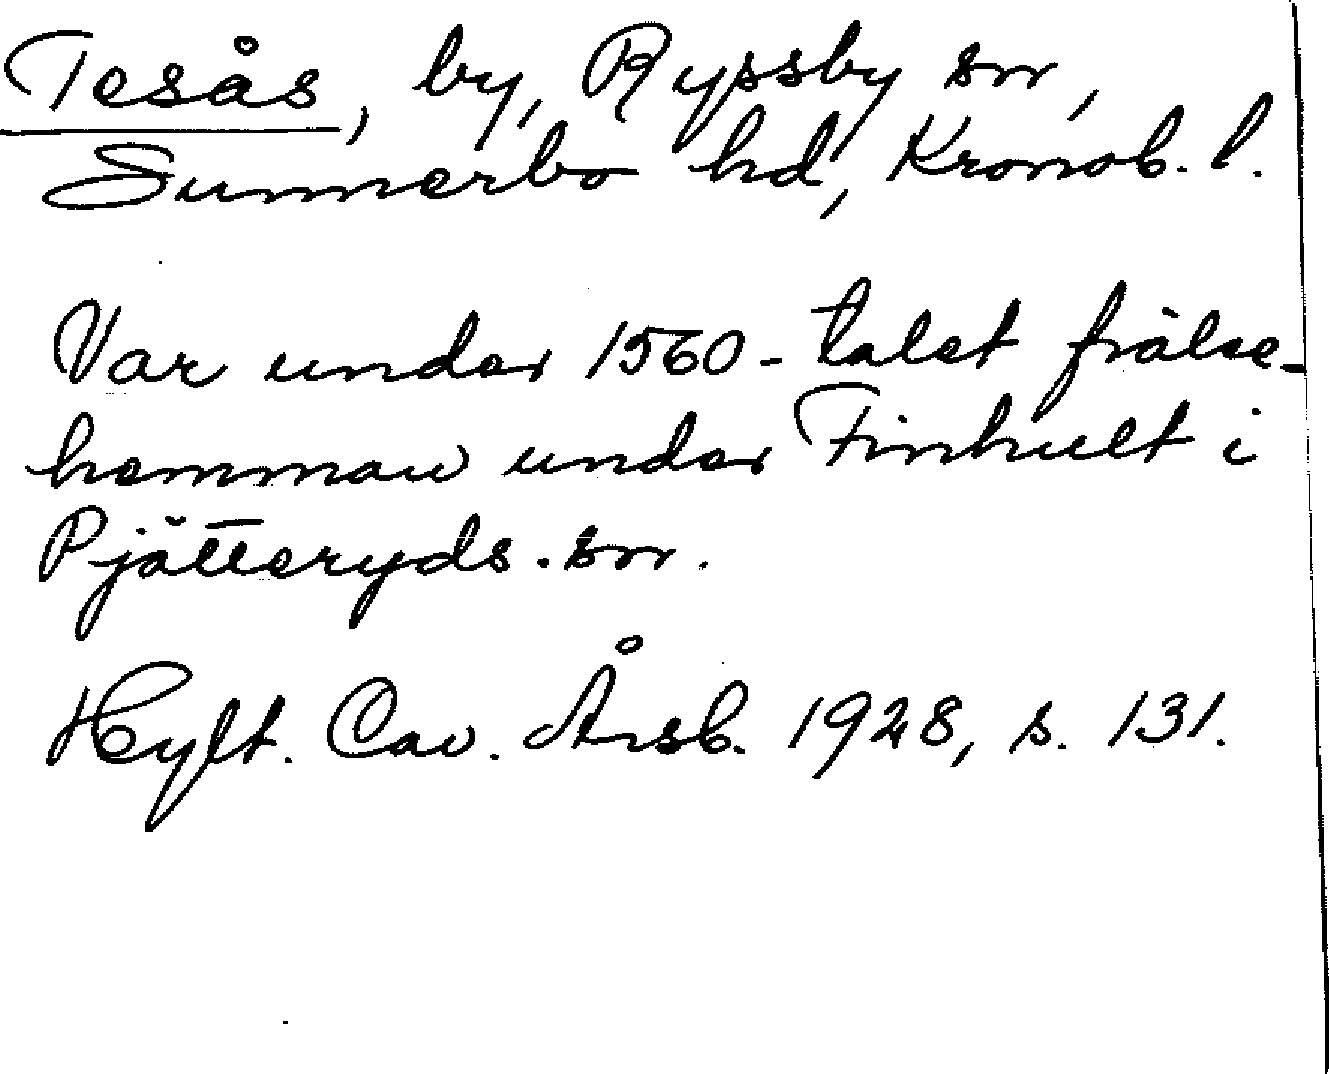 Tesås, by, Ryssby sn,
Sunnerbo hd, Kronob. l.
Var under 1560-talet frälse-
hemman under Finhult i
Pjätteryds. sn.
Hylt. Cav. Årsb. 1928, s. 131.